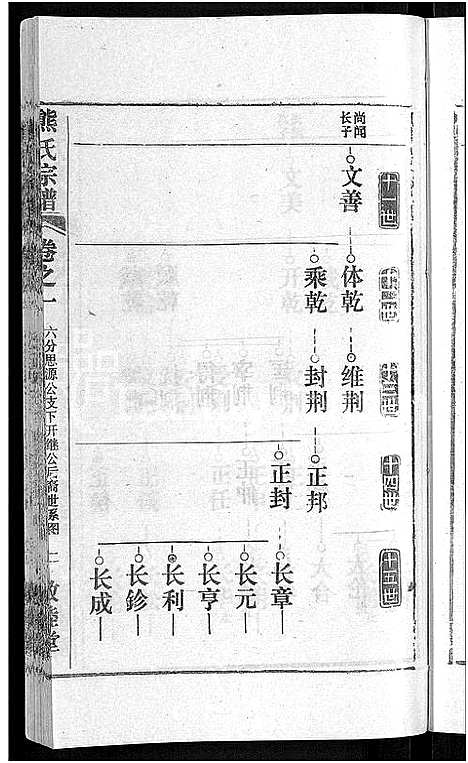 十一世
尚闻
长子
文善
体乾
乘乾
维荆
封荆
十四世
正邦
正封
十五世
长章
长元
长亨
长利
长鉁
长成
熊氏宗谱
卷之一
六分思源公支下开继公后裔世系图
敦睦堂